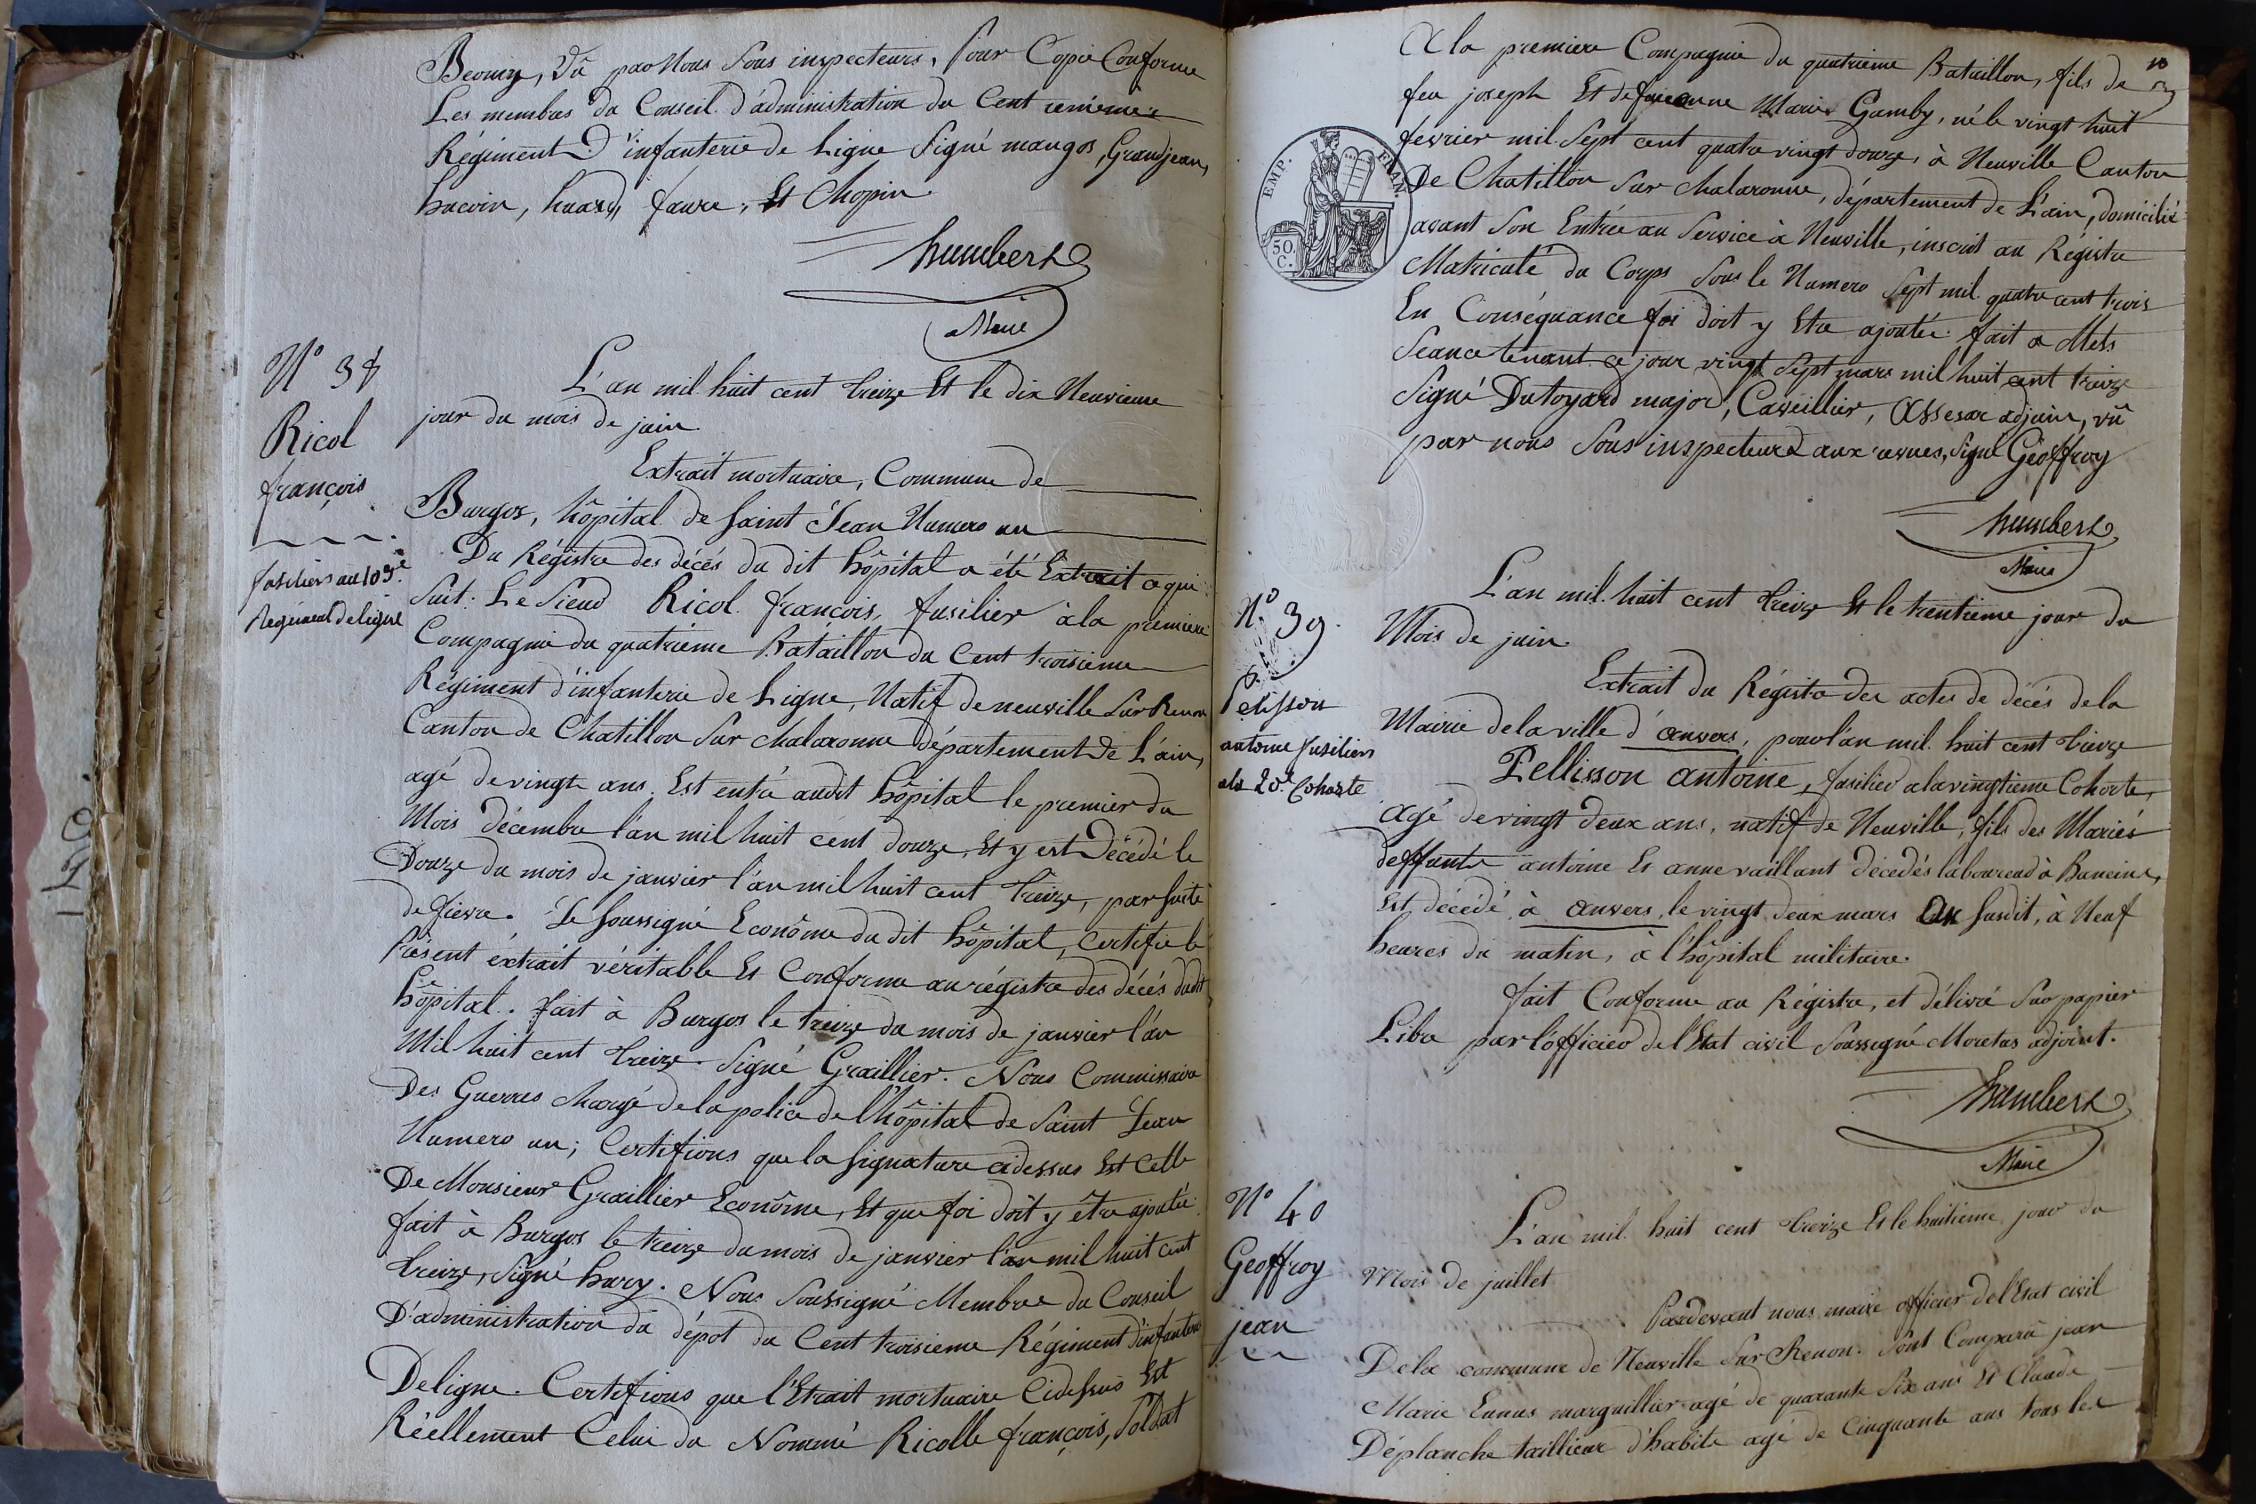 Vû par Nous Sous inspecteurs, Pour Copie Conforme
Les membres du Conseil d'administration du Cent
Régiment D'infanterie de Ligne Signé mangos, Grandjean,
huard, faure, Et Chopin.
humbert
Maire
N° 38
Ricol
françois
fusiliers au 103e
Regiment de ligne
L'an mil huit cent treize Et le dix Neuvieme
jour du mois de juin.
Extrait mortuaire, Commune de
Burgos, hôpital de Saint Jean Numero un
Du Régistre des décés du dit hôpital a été Extrait ce qui
Suit: Le Sieur Ricol françois, fusilier à la premiere
Compagnie du quatrieme Bataillon du Cent troisieme
Régiment d'infanterie de Ligne, Natif de neuville Sur Renon
Canton de Chatillon Sur chalaronne département de L'ain,
agé de vingt ans. Est entré audit hôpital le premier du
Mois décembre l'an mil huit cent douze, Et y est Décédé le
Douze du mois de janvier l'an mil huit cent treize, par suite
de fievre. Je soussigné Econôme du dit hôpital, certifie le
Présent éxtrait véritable Et Conforme au régistre des décés dudit
hôpital. fait à Burgos le treize du mois de janvier l'an
Mil huit cent treize. Signé Graillier. Nous Commissaire
Des Guerres chargé de la police de l'hôpital de Saint Jean
Numero un; Certifions que la signature cidessus Est Celle
De Monsieur Graillier Econôme, Et que foi doit y être ajoutée.
fait à Burgos le treize du mois de janvier l'an mil huit cent
treize, Signé hary. Nous Soussigné Membre du Conseil
D'administration du dépot du Cent troisieme Régiment d'infanterie
Deligne. Certifions que l'Etrait mortuaire Cidessus Est
Réellement Celui du Nommé Ricolle françois, Soldat
A la premiere Compagnie du quatrieme Bataillon, fils de
feu joseph Et de Marie Gamby, né le vingt huit
fevrier mil Sept cent quatre vingt douze, à Neuville Canton
De Chatillon Sur chalaronne, département de L'ain, domicilié
avant Son Entrée au Service à Neuville, inscrit au Régistre
Matricule du Corps Sous le Numero Sept mil quatre cent trois
En Conséquance foi doit y Etre ajoutée. fait a Mets
Seance tenant ce jour vingt Sept mars mil huit cent treize
Signé Dutoyard major, Caveillier, Assesar adjoin, vû
par nous Sous inspecteurs aux revues, Signé Géoffroy
EMP. FRAN.
50 C.
humbert
Maire
N° 39.
Pelisson
antoine fusiliers
ala 20e Cohorte
L'an mil huit cent treize Et le trentieme jour du
Mois de juin.
Extrait du Régistre des actes de décés de la
Mairie de la ville d'anvers, pour l'an mil huit cent treize
Pellisson antoine, fusilier a la vingtieme Cohorte,
agé de vingt deux ans, natif de Neuville, fils des Mariés
deffunts antoine Et anne vaillant décedés laboureur à Baneins,
Est décédé à anvers, le vingt deux mars an susdit, à Neuf
heures du matin, à l'hôpital militaire.
fait Conforme au Régistre, et délivré Sur papier
Libre par l'officier de l'Etat civil Soussigné Moretus adjoint.
humbert
Maire
N° 40
Geoffroy
jean
L'an mil huit cent treize Et le huitieme jour du
Mois de juillet
Pardevant nous maire officier de l'Etat civil
De la commune de Neuville Sur Renon. Sont Comparu jean
Marie marguillier agé de quarante Six ans Et Claude
Déplanche taillieur d'habits agé de Cinquante ans tous les